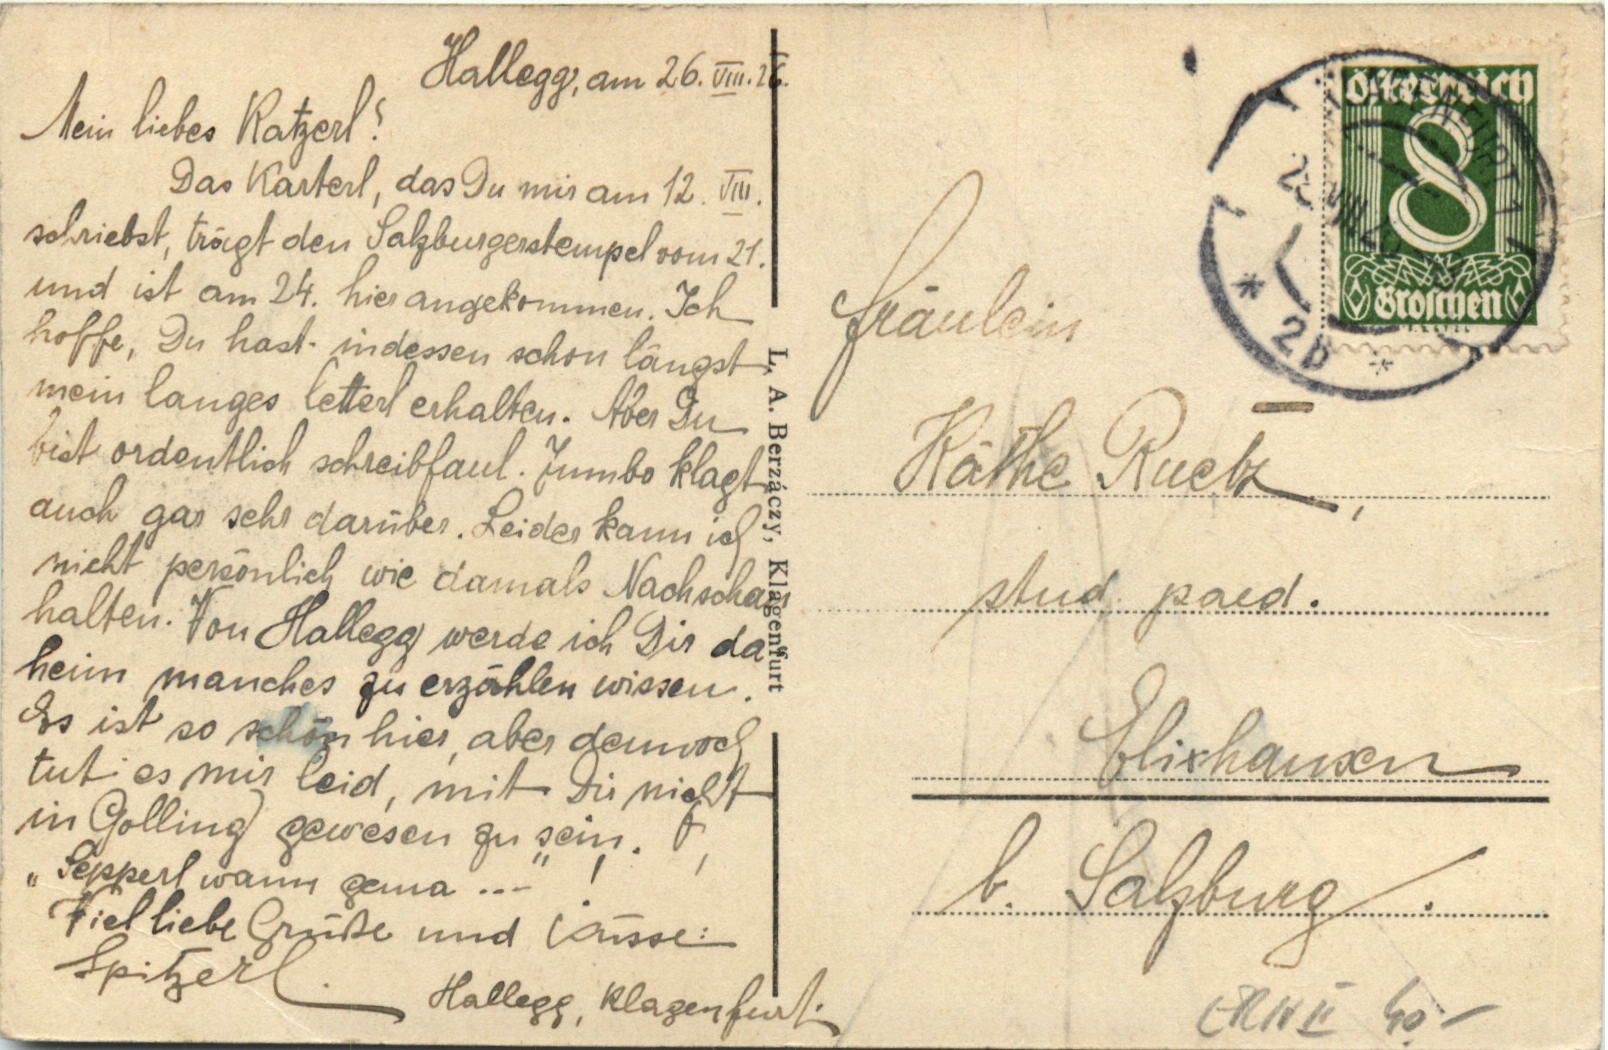 Hallegg, am 26. VIII. 26.
Mein liebes Katzerl!
Das Karterl, das Du mir am 12. VIII.
schriebst, trägt den Salzburgerstempel vom 21.
und ist am 24. hier angekommen. Ich
hoffe, Du hast indessen schon längst
mein langes Letterl erhalten. Aber Du
bist ordentlich schreibfaul. Jumbo klagt
auch gar sehr darüber. Leider kann ich
nicht persönlich wie damals Nachschau
halten. Von Hallegg werde ich Dir da
heim manches zu erzählen wissen.
Es ist so schön hier, aber dennoch
tut es mir leid, mit Dir nicht
in Golling gewesen zu sein.
„Sepperl wann gema ..." !
Viel liebe Grüße und Küsse:
Spitzerl.
Hallegg, Klagenfurt.
L. A. Berzáczy, Klagenfurt
Österreich
8
Groschen
KLAGENFURT 1
VIII 26
* 2b *
Fräulein
Käthe Ruetz,
stud. paed.
Elixhausen
b. Salzburg.